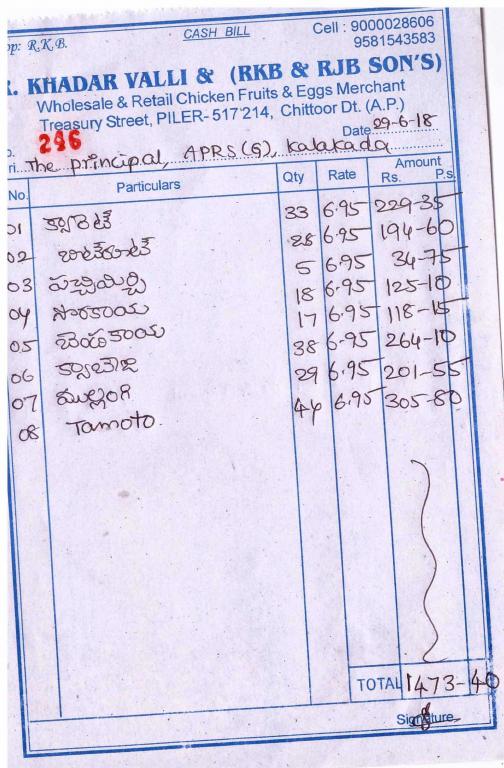 pp: R.K.B.
CASH BILL
Cell : 9000028606
9581543583
R. KHADAR VALLI & (RKB & RJB SON'S)
Wholesale & Retail Chicken Fruits & Eggs Merchant
Treasury Street, PILER- 517 214, Chittoor Dt. (A.P.)
246
Date 29-6-18
The principal, APRS(G), Kalakada
No. Particulars Qty Rate Amount
Rs. P.s.
01 క్యారెట్ 33 6.95 229-35
02 బీట్‌రూట్ 28 6.95 194-60
03 పచ్చిమిర్చి 5 6.95 34-75
04 సొరకాయ 18 6.95 125-10
05 బెండకాయ 17 6.95 118-15
06 క్యాబేజి 38 6.95 264-10
07 ముల్లంగి 29 6.95 201-55
08 Tamoto. 44 6.95 305-80
TOTAL 1473-40
Signature